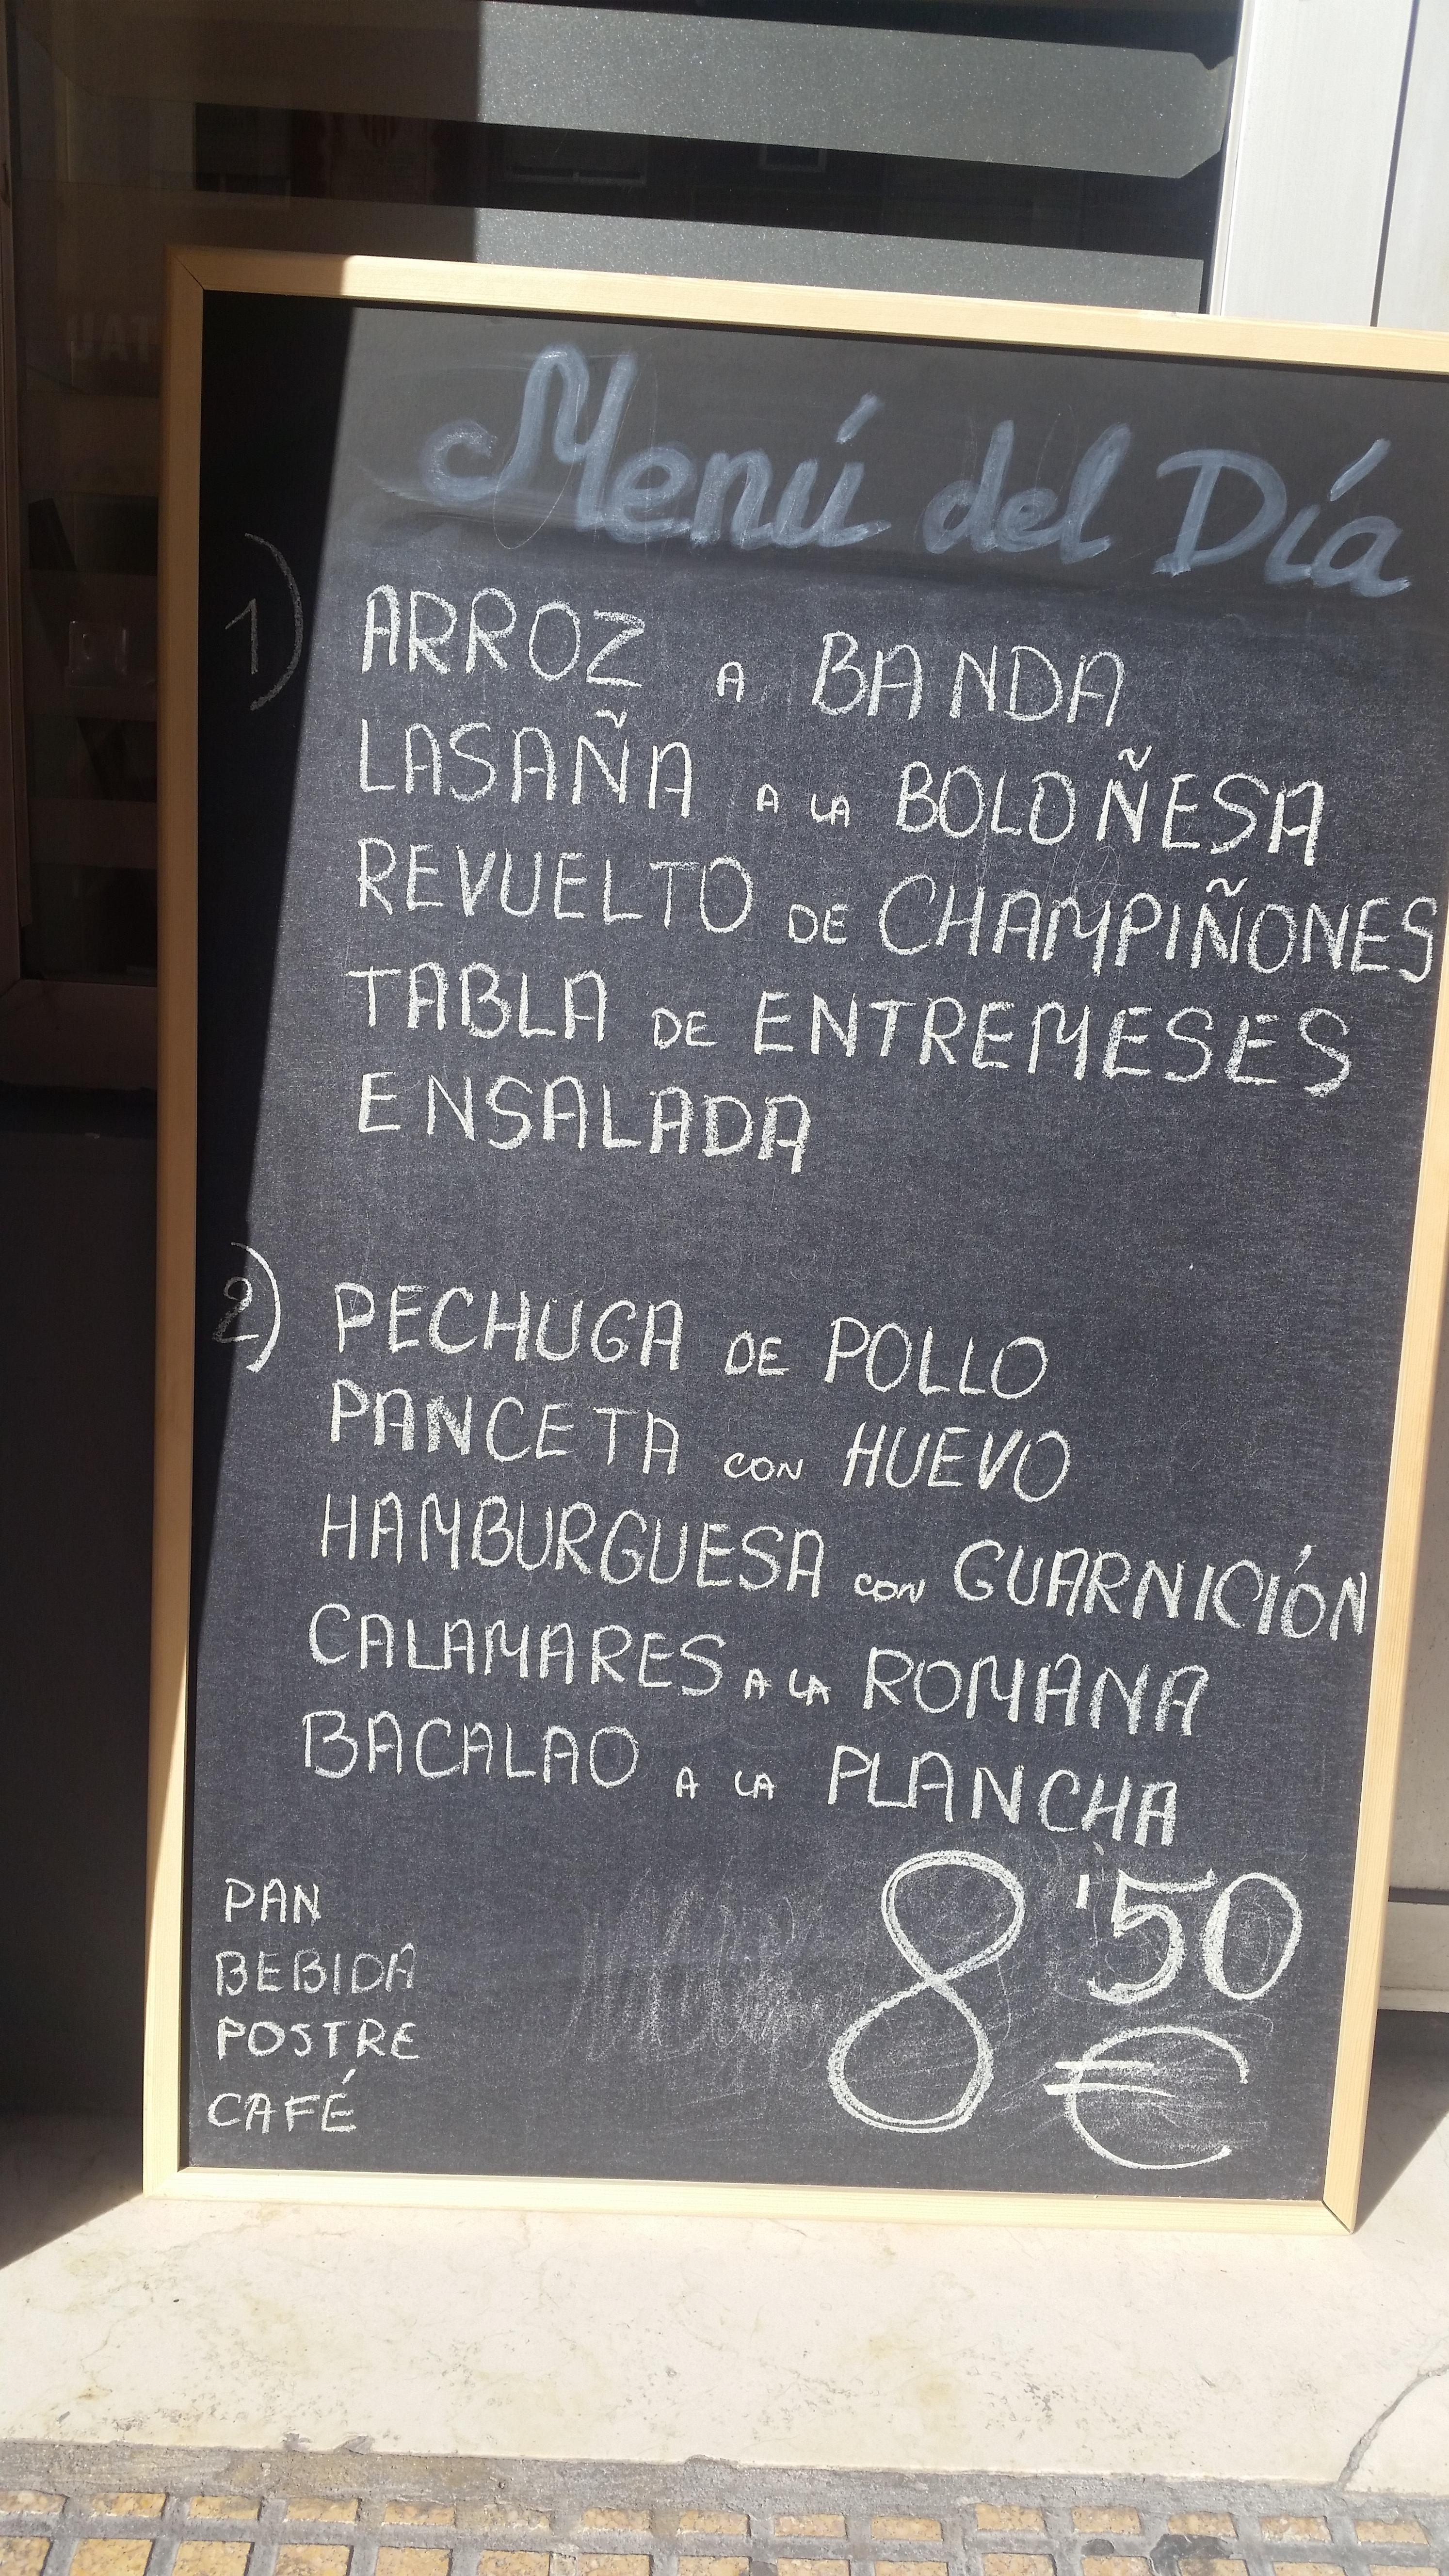 Menú del Día
1) ARROZ A BANDA
LASAÑA A LA BOLOÑESA
REVUELTO DE CHAMPIÑONES
TABLA DE ENTREMESES
ENSALADA
2) PECHUGA DE POLLO
PANCETA CON HUEVO
HAMBURGUESA CON GUARNICIÓN
CALAMARES A LA ROMANA
BACALAO A LA PLANCHA
PAN
BEBIDA
POSTRE
CAFÉ
8'50
€